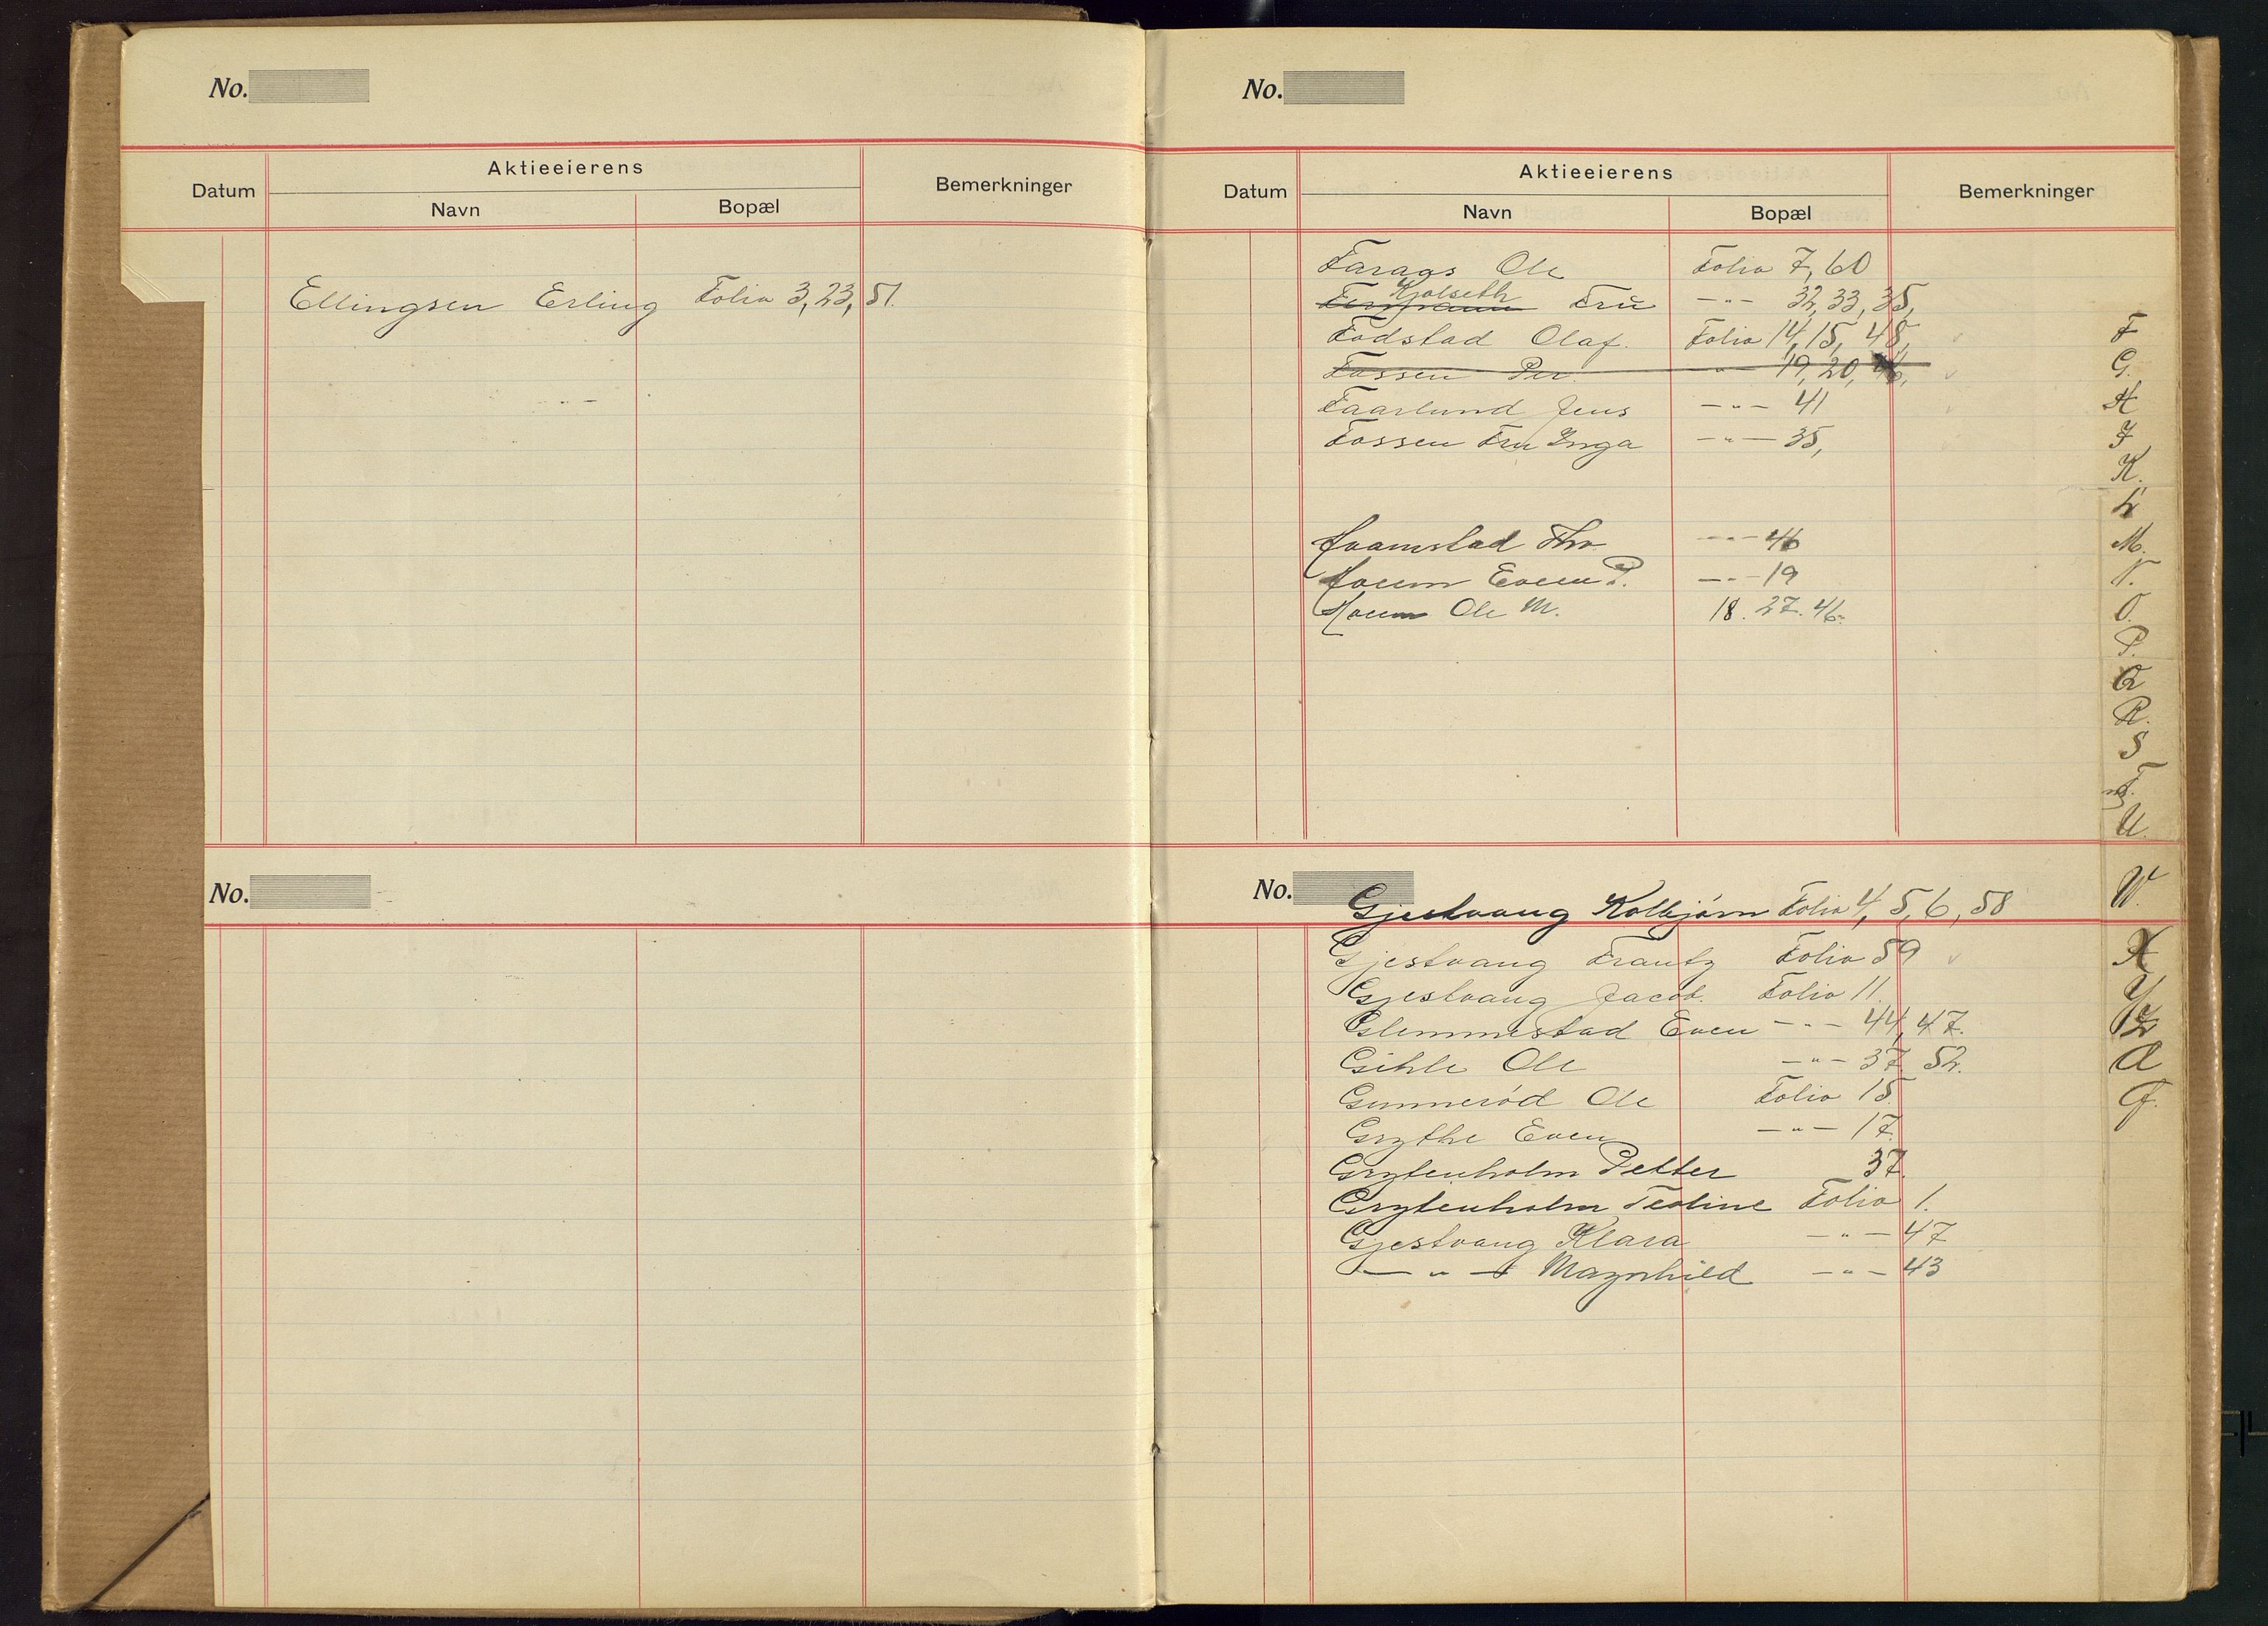 No.
Datum
Aktieeierens
Navn
Bopæl
Bemerkninger
Ellingsen Erling Folio 3, 23, 51.
No.
No.
Datum
Aktieeierens
Navn
Bopæl
Bemerkninger
Farags Ole Folio 7, 60
Kjølseth
Fru -"- 32, 33, 35,
Fodstad Olaf. Folio 14, 15, 48,
Fossen Per. -"- 19, 20,
Faarlund Jens -"- 41
Fossen Fru Inga -"- 35,
Hvamstad Thv -"- 46
Hoem Even P. -"- 19
Hoem Ole M. 18. 27. 46.
No.
Gjestvang Kolbjørn Folio 4, 5, 6, 58
Gjestvang Frantz Folio 59
Gjestvang Jacob. Folio 11.
Glemmestad Even -"- 44, 47.
Gihle Ole -"- 37 52.
Gunnerød Ole Folio 15.
Grythe Even -"- 17.
Grytenholm Petter 37.
Grytenholm Teoline Folio 1.
Gjestvang Klara -"- 47
-"- Magnhild -"- 43
F
G.
H
J
K.
L
M.
N.
O.
P.
Q
R.
S
T.
U.
W.
X
Y
Z
Ø